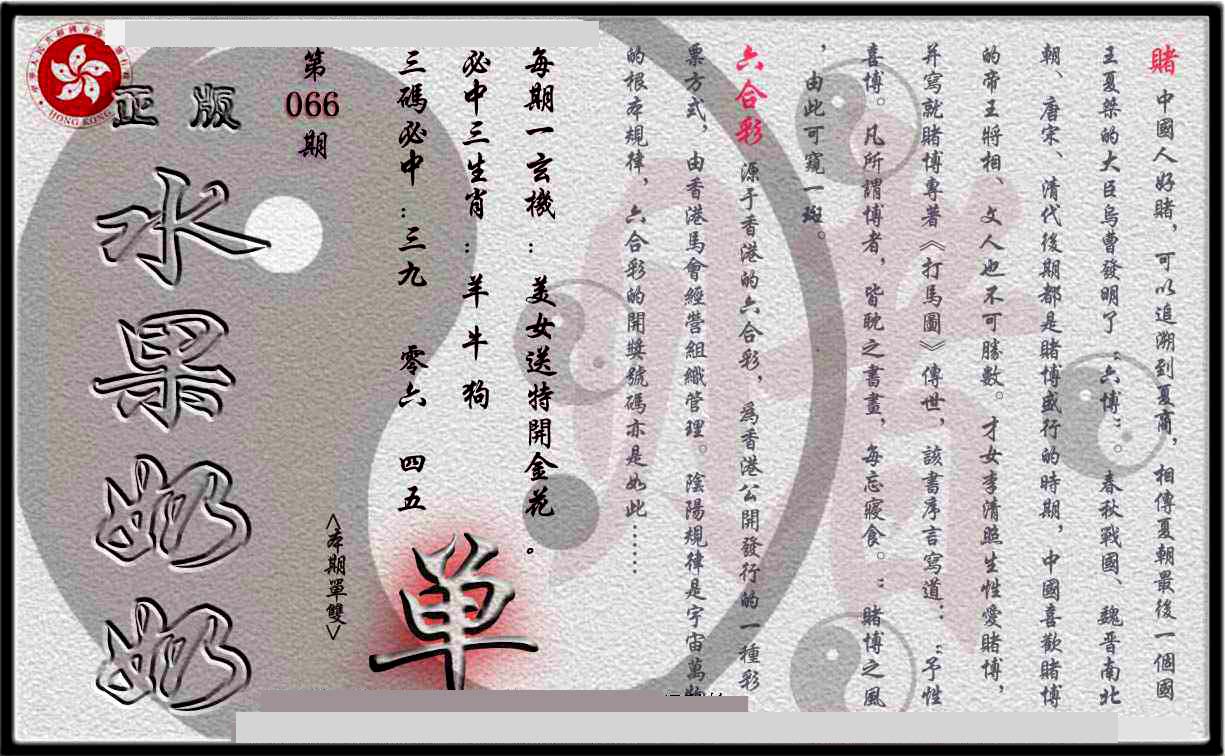 賭 中國人好賭，可以追溯到夏商，相傳夏朝最後一個國
王夏桀的大臣烏曹發明了“六博”。春秋戰國、魏晋南北
朝、唐宋、清代後期都是賭博盛行的時期，中國喜歡賭博
的帝王將相、文人也不可勝數。才女李清照生性愛賭博，
并寫就賭博專著《打馬圖》傳世，該書序言寫道：“予性
喜博。凡所謂博者，皆耽之書畫，每忘寢食。”賭博之風
，由此可窺一斑。
六合彩 源于香港的六合彩，爲香港公開發行的一種彩
票方式，由香港馬會經營組織管理。陰陽規律是宇宙萬物
的根本規律，六合彩的開獎號碼亦是如此……
每期一玄機：美女送特開金花。
必中三生肖：羊牛狗
三碼必中：三九 零六 四五
單
<本期單雙>
第066期
正版
水果奶奶
HONG KONG